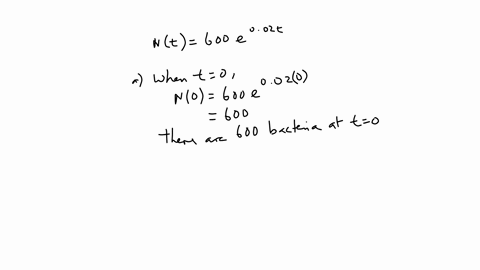 N(t) = 600 e^{0.02t}
a) When t=0,
N(0) = 600 e^{0.02(0)}
= 600
There are 600 bacteria at t=0